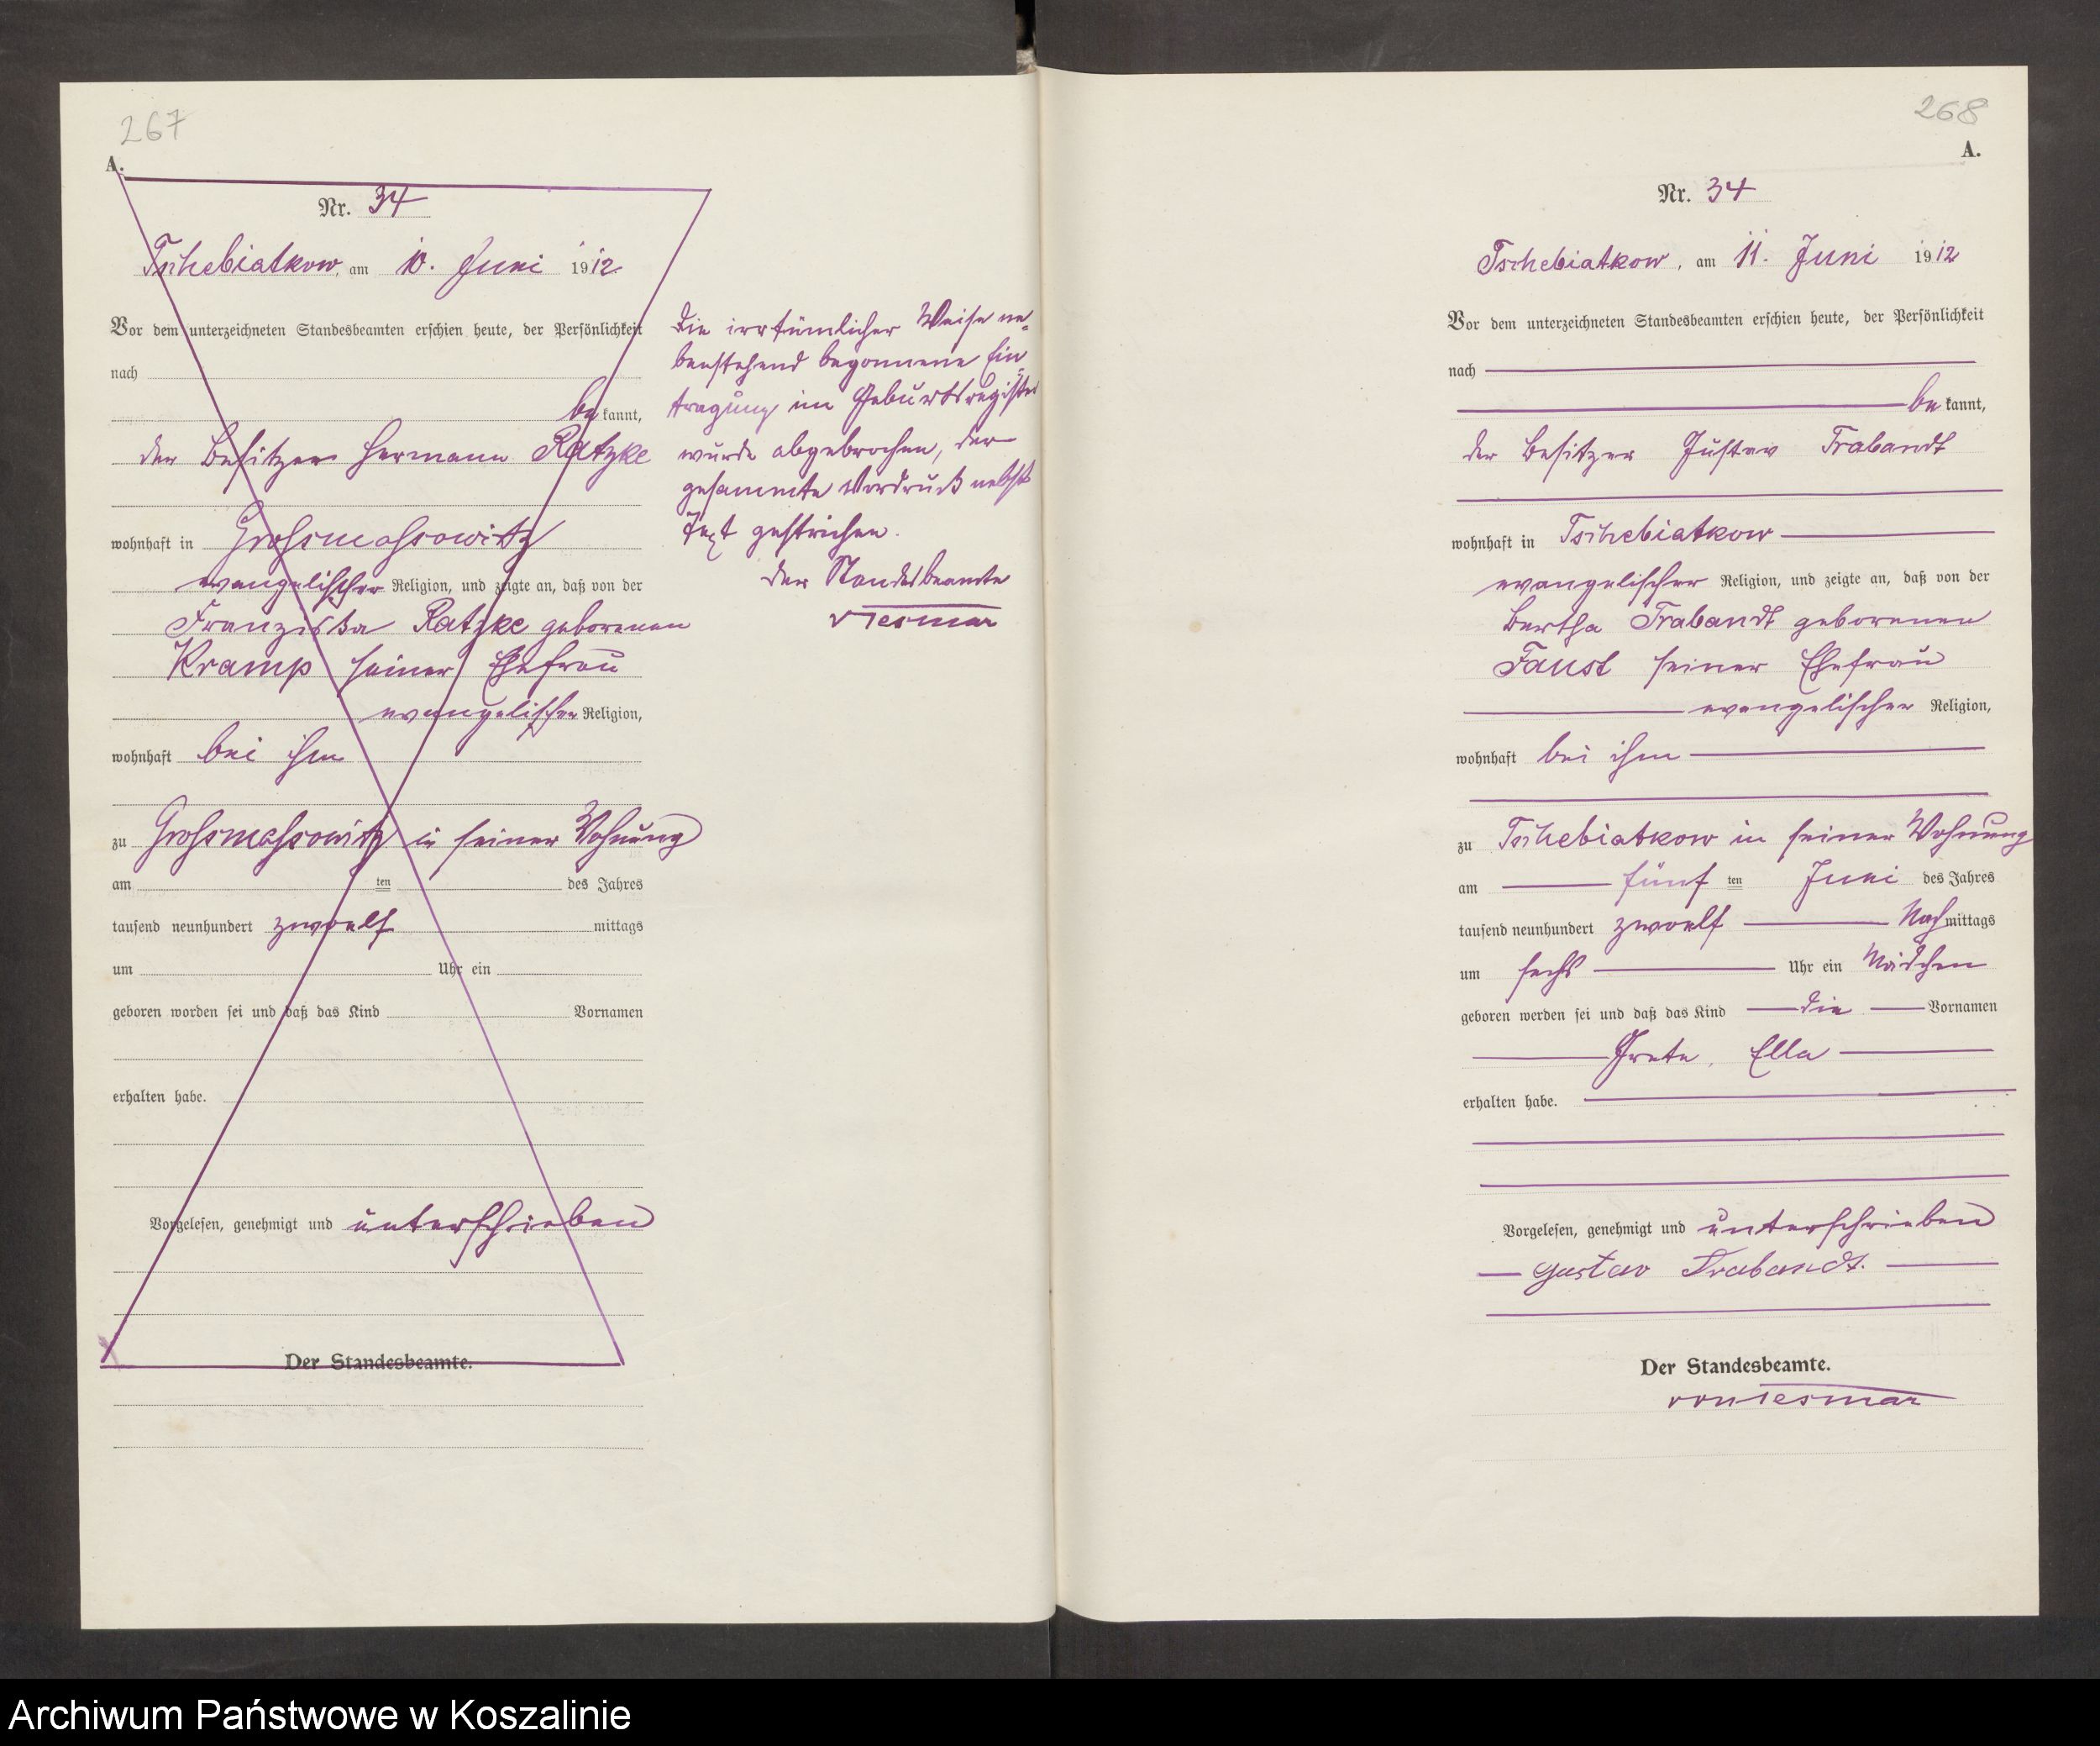 267
A.
Nr. 34
Tschebiatkow, am 10. Juni 1912
Vor dem unterzeichneten Standesbeamten erschien heute, der Persönlichkeit
nach
be kannt,
der Besitzer Hermann Ratzke
wohnhaft in Grossmassowitz
evangelischer Religion, und zeigte an, daß von der
Franziska Ratzke geborenen
Kramp seiner Ehefrau
evangelischer Religion,
wohnhaft bei ihm
zu Grossmassowitz in seiner Wohnung
am ten des Jahres
tausend neunhundert zwoelf mittags
um Uhr ein
geboren worden sei und daß das Kind Vornamen
erhalten habe.
Vorgelesen, genehmigt und unterschrieben
Der Standesbeamte.
Die irrtümlicher Weise ne-
benstehend begonnene Ein-
tragung im Geburtsregister
wurde abgebrochen, der
gesammte Vordruck nebst
Text gestrichen.
Der Standesbeamte
vTesmar
268
A.
Nr. 34
Tschebiatkow, am 11. Juni 1912
Vor dem unterzeichneten Standesbeamten erschien heute, der Persönlichkeit
nach
be kannt,
der Besitzer Gustav Trabandt
wohnhaft in Tschebiatkow
evangelischer Religion, und zeigte an, daß von der
Bertha Trabandt geborenen
Faust seiner Ehefrau
evangelischer Religion,
wohnhaft bei ihm
zu Tschebiatkow in seiner Wohnung
am fünf ten Juni des Jahres
tausend neunhundert zwoelf Nach mittags
um sechs Uhr ein Mädchen
geboren werden sei und daß das Kind die Vornamen
Grete, Ella
erhalten habe.
Vorgelesen, genehmigt und unterschrieben
Gustav Trabandt.
Der Standesbeamte.
von Tesmar
Archiwum Państwowe w Koszalinie